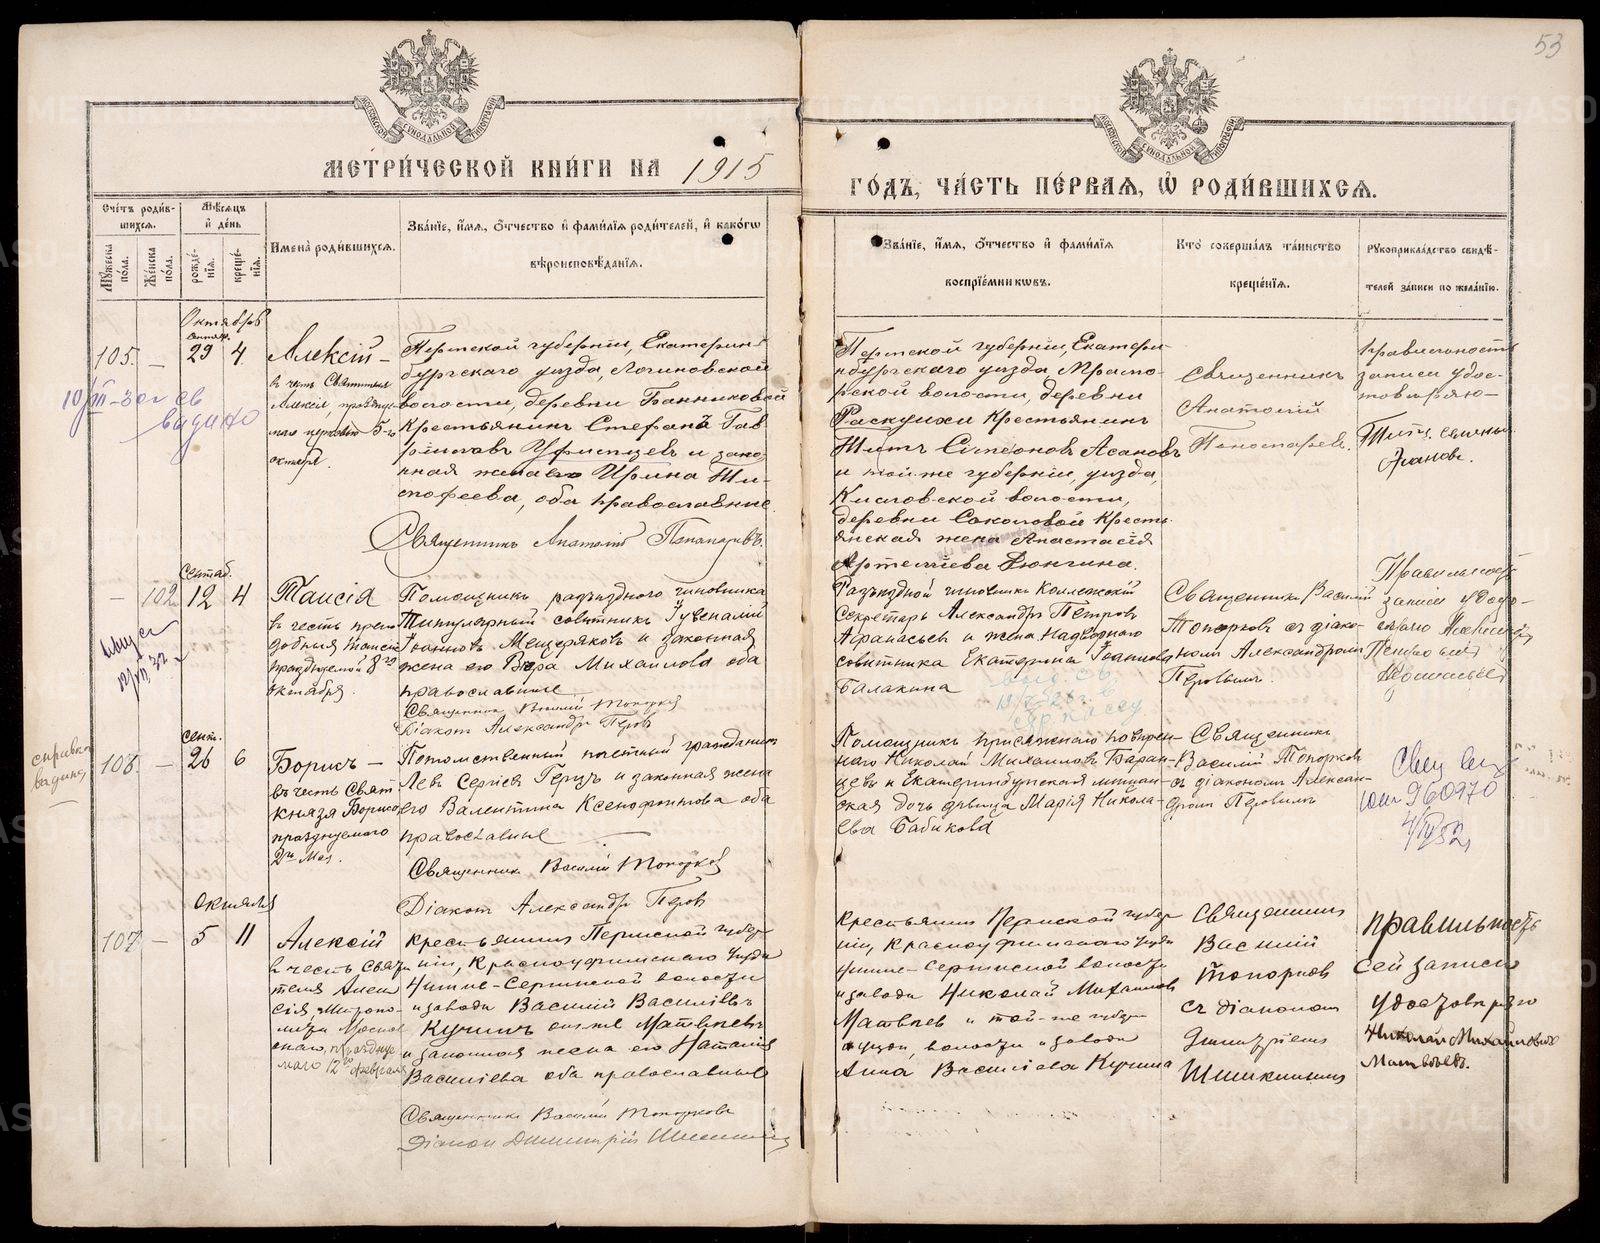 53
МЕТРИ́ЧЕСКОЙ КНИ́ГИ НА 1915
ГО́ДЪ, ЧА́СТЬ ПЕ́РВАЯ, Ѡ҆ РОДИ́ВШИХСЯ.
Сче́тъ роди́в-
шихся.
Мѣ́сяцъ
и де́нь
Мꙋ́жеска по́ла.
Же́нска по́ла.
рожде́-
нїя.
креще́-
нїя.
Имена̀ роди́вшихся.
Зва́нїе, и́мя, о́тчество и фами́лїя роди́телей, и како́гѡ
вѣроисповѣ́данїя.
Зва́нїе, и́мя, о́тчество и фами́лїя
воспрїе́мникѡвъ.
Кто̀ соверша́лъ та́инство
креще́нїя.
Рꙋкоприкла́дство свидѣ́-
телей за́писи по жела́нїю.
Октябрь
105. — 29 4.
Алексій —
въ честь Святителя
Алексія, праздну-
емаго 5-го
октября.
Пермской губерніи, Екатерин-
бургскаго уѣзда, Логиновской
волости, деревни Банниковой
Крестьянинъ Стефанъ Гав-
риловъ Уфимцевъ и зако-
нная жена его Ирина Ти-
мофеева, оба православные.
Священникъ Анатолій Пономаревъ.
Пермской губерніи, Екатери-
нбургскаго уѣзда, Мрамо-
рской волости, деревни
Раскуихи Крестьянинъ
Титъ Симеоновъ Асановъ
и той-же губерніи, уѣзда,
Кисловской волости,
деревни Соколовой Кресть-
янская жена Анастасія
Артемьева Дюкина.
Священникъ
Анатолій
Пономаревъ.
Правильность
записи удос-
товѣряю—
Титъ Семеновъ
Асановъ.
Сентяб.
— 102 12 4
Таисія
въ честь препо-
добныя Таисіи
празднуемой 8-го
октября.
Помощникъ разъѣзднаго чиновника
Титулярный совѣтникъ Іувеналій
Іоанновъ Мещеряковъ и законная
жена его Вѣра Михайлова оба
православные
Священник Василій Топорков
Діакон Александръ Перов
Разъѣздной чиновникъ Коллежскій
Секретарь Александръ Петровъ
Афанасьев и жена Надворнаго
совѣтника Екатерина Іоаннова
Балакина
Священникъ Василій
Топорковъ съ діако-
номъ Александромъ
Перовымъ.
Правильность
записи удосто-
вѣряю Александръ
Петровъ
Афанасьев
справка
выдана
Сент.
106. — 26 6
Борисъ —
въ честь Свят.
князя Бориса
празднуемаго
2-го Мая.
Потомственный почетный гражданинъ
Левъ Сергіевъ Герцъ и законная жена
его Валентина Ксенофонтова оба
православные
Священникъ Василій Топорков
Діаконъ Александръ Перов
Помощникъ присяжнаго повѣрен-
наго Николай Михаиловъ Баран-
цевъ и Екатеринбургская мѣщан-
ская дочь дѣвица Марія Никола-
ева Бабикова
Священникъ
Василій Топорковъ
съ діакономъ Алексан-
дромъ Перовымъ
960970
Октября
107. — 5 11
Алексій
въ честь Святи-
теля Алек-
сія, Митропо-
лита Москов-
скаго, праздну-
маго 12го февраля
Крестьянинъ Пермской губер-
ніи, Красноуфимскаго уѣзда
Нижне-Сергинской волости
и завода Василій Василіевъ
Кучинъ онъ же Матвѣевъ
и законная жена его Наталія
Василіева оба православные
Священникъ Василій Топорковъ
Діакон Димитрій Шишкинъ
Крестьянинъ Пермской губер-
ніи, Красноуфимскаго уѣзда
Нижне-Сергинской волости
и завода Николай Михаиловъ
Матвѣев и той-же губер.
и уѣзда, волости и завода
Анна Василіева Кучина
Священникъ
Василій
Топорков
съ діакономъ
Димитріемъ
Шишкинымъ
Правильность
сей записи
удостовѣряю
Николай Михайловичъ
Матвѣевъ.